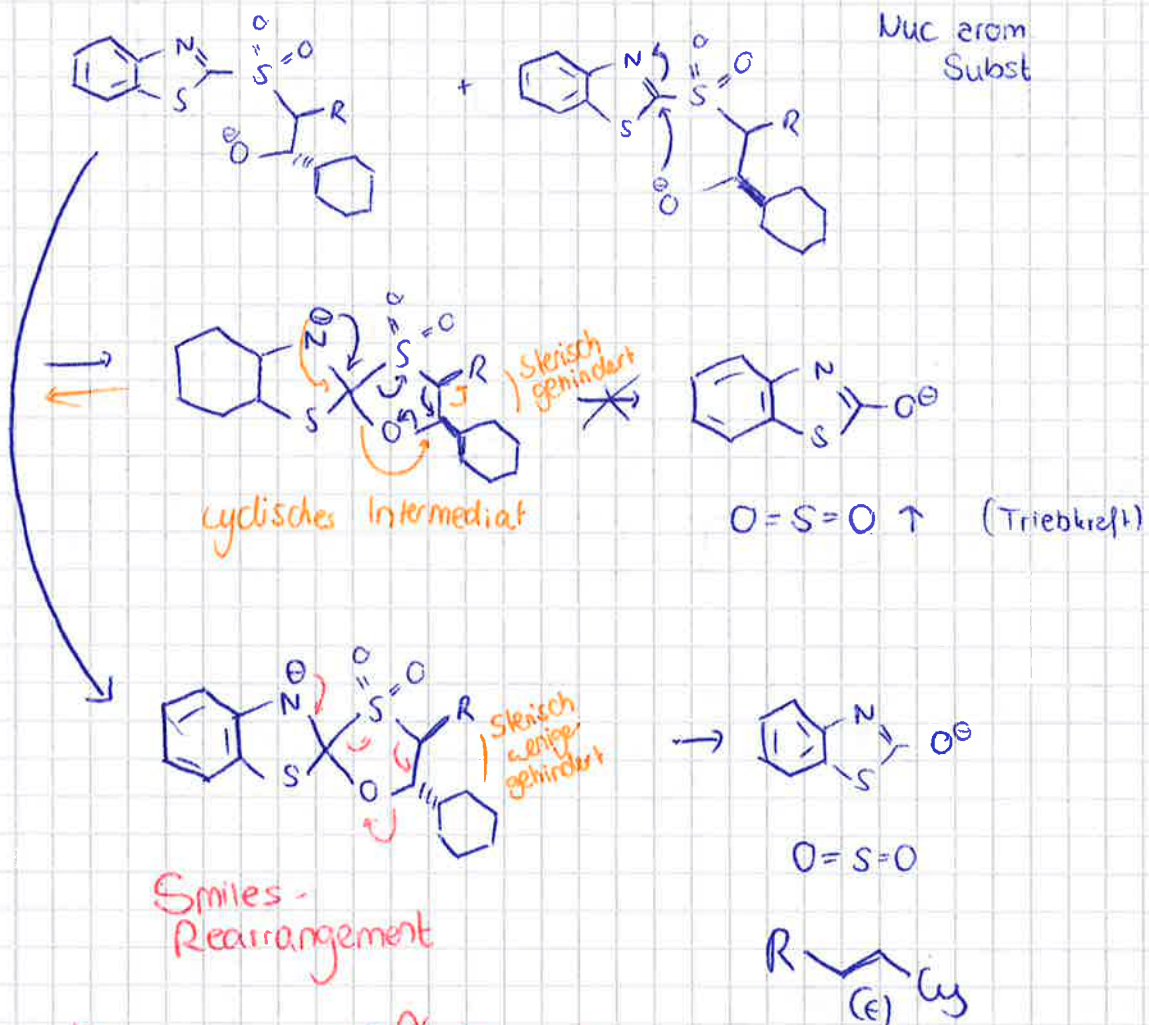 Nuc arom
Subst
O
O
N
S
S
R
⊖O
+
O
O
N
S
S
R
⊖O
⊖
N
O
O
S
R
S
O
Sterisch
gehindert
cyclisches Intermediat
N
S
O⊖
O=S=O ↑ (Triebkraft)
⊖
N
O
O
S
R
S
O
Sterisch
weniger
gehindert
N
S
O⊖
O=S=O
Smiles-
Rearrangement
R
Cy
(E)